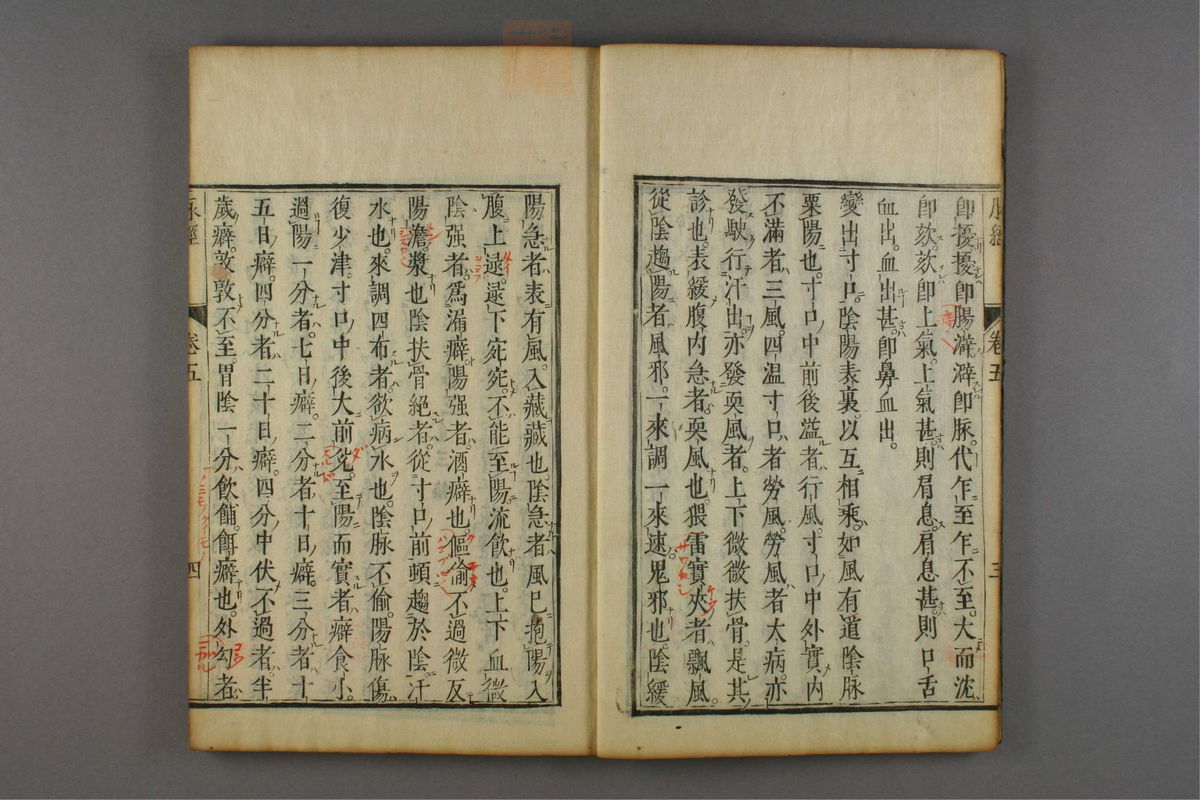 脉經
卷五
三
卽擾擾卽腸澼澼卽脉代乍至乍不至。大而沈
卽欬。欬卽上氣。上氣甚則肩息。肩息甚則口舌
血出。血出甚卽鼻血出。
變出寸口。陰陽表裏。以互相乘。如風有道陰脉
乗陽也。寸口中前後溢者行風。寸口中外實內
不滿者三風。四温寸口者勞風。勞風者大病。亦
發駛行汗出亦發耎風者。上下微微扶骨。是其
診也。表緩腹內急者耎風也。猥雷實夾者飄風。
從陰趨陽者風邪。一來調一來速鬼邪也。陰緩
陽急者表有風。入藏藏也。陰急者風已抱陽入
腹上逯。逯下宛宛。不能至陽流飮也。上下血微
陰强者爲漏癖。陽强者酒癖也。傴偷不過微反
陽澹漿也陰扶骨絕者。從寸口前頓趨於陰汗
水也。來調四布者。欲病水也。陰脉不偷。陽脉傷。
復少津。寸口中後大前兊。至陽而實者癖食。小
過陽一分者。七日癖。二分者十日癖。三分者十
五日癖。四分者二十日癖。四分中伏不過者。半
歲癖。敦敦不至。胃陰一分。飮餔。餌癖也。外勾者
脉經
卷五
四